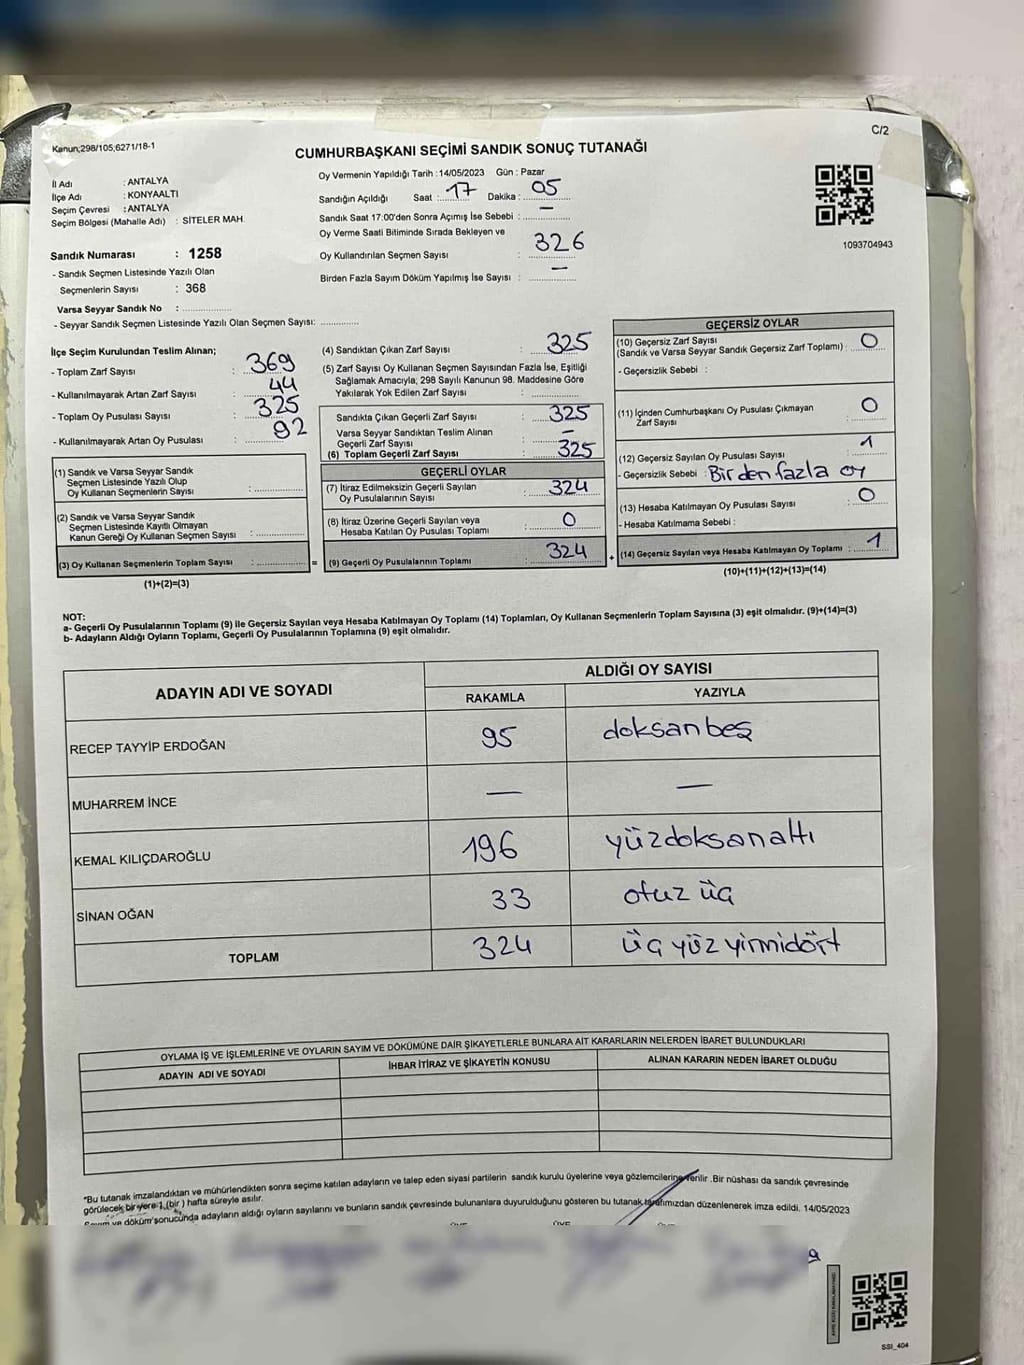 Kanun;298/105;6271/18-1
C/2
CUMHURBAŞKANI SEÇİMİ SANDIK SONUÇ TUTANAĞI
İl Adı : ANTALYA
İlçe Adı : KONYAALTI
Seçim Çevresi : ANTALYA
Seçim Bölgesi (Mahalle Adı) : SİTELER MAH.
Sandık Numarası : 1258
- Sandık Seçmen Listesinde Yazılı Olan
Seçmenlerin Sayısı : 368
Varsa Seyyar Sandık No :
- Seyyar Sandık Seçmen Listesinde Yazılı Olan Seçmen Sayısı:
Oy Vermenin Yapıldığı Tarih :14/05/2023 Gün : Pazar
Sandığın Açıldığı Saat : 17 Dakika : 05
Sandık Saat 17:00'den Sonra Açımış İse Sebebi : —
Oy Verme Saati Bitiminde Sırada Bekleyen ve
Oy Kullandırılan Seçmen Sayısı : 326
Birden Fazla Sayım Döküm Yapılmış İse Sayısı : —
1093704943
İlçe Seçim Kurulundan Teslim Alınan;
- Toplam Zarf Sayısı : 369
- Kullanılmayarak Artan Zarf Sayısı : 44
- Toplam Oy Pusulası Sayısı : 325
- Kullanılmayarak Artan Oy Pusulası : 92
(1) Sandık ve Varsa Seyyar Sandık
Seçmen Listesinde Yazılı Olup
Oy Kullanan Seçmenlerin Sayısı :
(2) Sandık ve Varsa Seyyar Sandık
Seçmen Listesinde Kayıtlı Olmayan
Kanun Gereği Oy Kullanan Seçmen Sayısı :
(3) Oy Kullanan Seçmenlerin Toplam Sayısı : =
(1)+(2)=(3)
(4) Sandıktan Çıkan Zarf Sayısı : 325
(5) Zarf Sayısı Oy Kullanan Seçmen Sayısından Fazla İse, Eşitliği
Sağlamak Amacıyla; 298 Sayılı Kanunun 98. Maddesine Göre
Yakılarak Yok Edilen Zarf Sayısı :
Sandıkta Çıkan Geçerli Zarf Sayısı : 325
Varsa Seyyar Sandıktan Teslim Alınan
Geçerli Zarf Sayısı : —
(6) Toplam Geçerli Zarf Sayısı : 325
GEÇERLİ OYLAR
(7) İtiraz Edilmeksizin Geçerli Sayılan
Oy Pusulalarının Sayısı : 324
(8) İtiraz Üzerine Geçerli Sayılan veya
Hesaba Katılan Oy Pusulası Toplamı : 0
(9) Geçerli Oy Pusulalarının Toplamı : 324 +
GEÇERSİZ OYLAR
(10) Geçersiz Zarf Sayısı
(Sandık ve Varsa Seyyar Sandık Geçersiz Zarf Toplamı) : 0
- Geçersizlik Sebebi :
(11) İçinden Cumhurbaşkanı Oy Pusulası Çıkmayan
Zarf Sayısı : 0
(12) Geçersiz Sayılan Oy Pusulası Sayısı : 1
- Geçersizlik Sebebi : Birden fazla oy
(13) Hesaba Katılmayan Oy Pusulası Sayısı : 0
- Hesaba Katılmama Sebebi :
(14) Geçersiz Sayılan veya Hesaba Katılmayan Oy Toplamı : 1
(10)+(11)+(12)+(13)=(14)
NOT:
a- Geçerli Oy Pusulalarının Toplamı (9) ile Geçersiz Sayılan veya Hesaba Katılmayan Oy Toplamı (14) Toplamları, Oy Kullanan Seçmenlerin Toplam Sayısına (3) eşit olmalıdır. (9)+(14)=(3)
b- Adayların Aldığı Oyların Toplamı, Geçerli Oy Pusulalarının Toplamına (9) eşit olmalıdır.
ADAYIN ADI VE SOYADI ALDIĞI OY SAYISI
RAKAMLA YAZIYLA
RECEP TAYYİP ERDOĞAN 95 doksanbeş
MUHARREM İNCE — —
KEMAL KILIÇDAROĞLU 196 yüzdoksanaltı
SİNAN OĞAN 33 otuz üç
TOPLAM 324 üç yüz yirmidört
OYLAMA İŞ VE İŞLEMLERİNE VE OYLARIN SAYIM VE DÖKÜMÜNE DAİR ŞİKAYETLERLE BUNLARA AİT KARARLARIN NELERDEN İBARET BULUNDUKLARI
ADAYIN ADI VE SOYADI İHBAR İTİRAZ VE ŞİKAYETİN KONUSU ALINAN KARARIN NEDEN İBARET OLDUĞU
*Bu tutanak imzalandıktan ve mühürlendikten sonra seçime katılan adayların ve talep eden siyasi partilerin sandık kurulu üyelerine veya gözlemcilerine verilir .Bir nüshası da sandık çevresinde
görülecek bir yere 1 (bir ) hafta süreyle asılır.
Sayım ve döküm sonucunda adayların aldığı oyların sayılarını ve bunların sandık çevresinde bulunanlara duyurulduğunu gösteren bu tutanak tarafımızdan düzenlenerek imza edildi. 14/05/2023
ÜYE ÜYE ÜYE
SSI_404